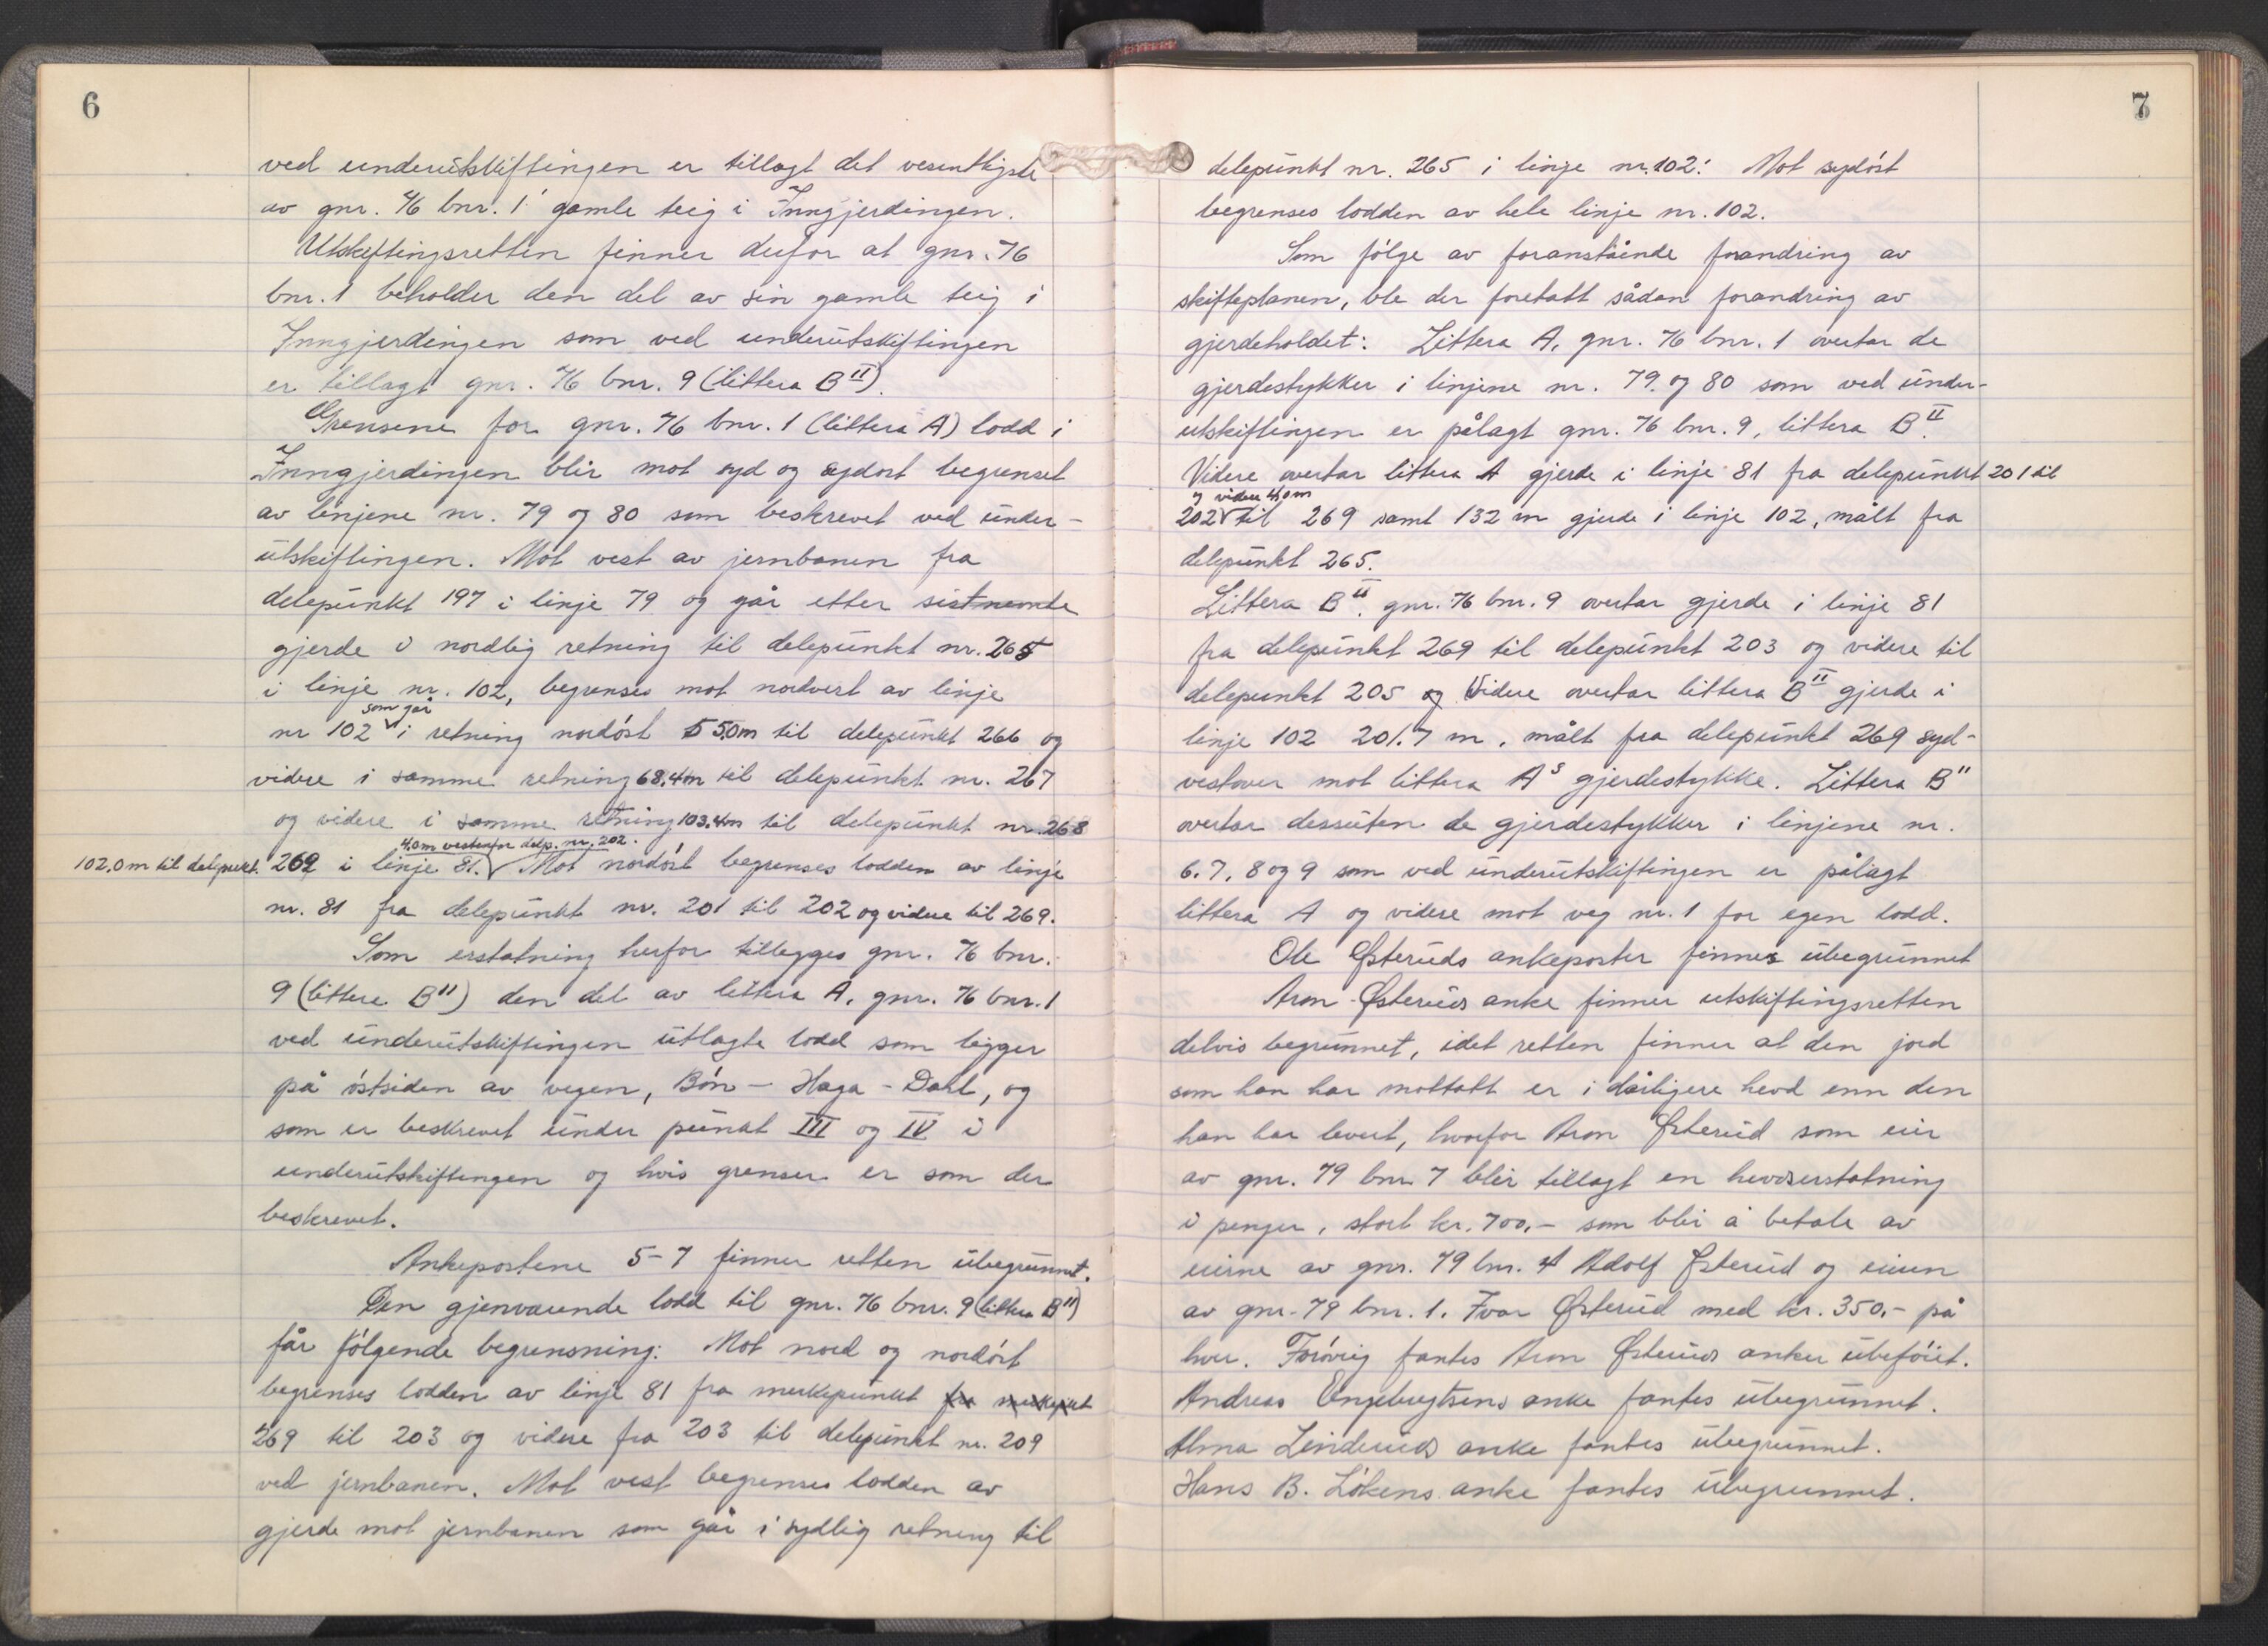 6
ved underutskiftingen er tillagt det vesentligste
av gnr. 76 bnr. 1 gamle teig i Inngjerdingen.
Utskiftingsretten finner derfor at gnr. 76
bnr. 1 beholder den del av sin gamle teig i
Inngjerdingen som ved underutskiftingen
er tillagt gnr. 76 bnr. 9 (littera B II).
Grensene for gnr. 76 bnr. 1 (littera A) lodd i
Inngjerdingen blir mot syd og sydost begrenset
av linjene nr. 79 og 80 som beskrevet ved under-
utskiftingen. Mot vest av jernbanen fra
delepunkt 197 i linje 79 og går etter sistnevnte
gjerde i nordlig retning til delepunkt nr. 265
i linje nr. 102, begrenses mot nordvest av linje
som går
nr 102 i retning nordöst 55.0m til delepunkt 266 og
videre i samme retning 68.4m til delepunkt nr. 267
og videre i samme retning 103.4m til delepunkt nr. 268
4.0m vestenfor delp. nr. 202.
102.0m til delpunkt. 269 i linje 81. Mot nordöst begrenses lodden av linje
nr. 81 fra delepunkt nr. 201 til 202 og videre til 269.
Som erstatning herfor tillegges gnr. 76 bnr.
9 (littera B II) den del av littera A, gnr. 76 bnr. 1
ved underutskiftingen utlagte lodd som ligger
på östsiden av vegen, Bön - Haga - Dahl, og
som er beskrevet under punkt III og IV i
underutskiftingen og hvis grenser er som der
beskrevet.
Ankepostene 5-7 finner retten ubegrunnet.
Den gjenværende lodd til gnr. 76 bnr. 9 (littera B II)
får fölgende begrensning: Mot nord og nordöst
begrenses lodden av linje 81 fra merkepunkt fra merkepkt
269 til 203 og videre fra 203 til delepunkt nr. 209
ved jernbanen. Mot vest begrenses lodden av
gjerde mot jernbanen som går i sydlig retning til
7
delepunkt nr. 265 i linje nr. 102. Mot sydöst
begrenses lodden av hele linje nr. 102.
Som fölge av foranstående forandring av
skifteplanen, ble der foretatt sådan forandring av
gjerdeholdet: Littera A, gnr. 76 bnr. 1 overtar de
gjerdestykker i linjene nr. 79 og 80 som ved under-
utskiftingen er pålagt gnr. 76 bnr. 9, littera B II.
Videre overtar littera A gjerde i linje 81 fra delepunkt 201 til
og videre 4.0m
202 til 269 samt 132 m gjerde i linje 102, målt fra
delepunkt 265.
Littera B II. gnr. 76 bnr. 9 overtar gjerde i linje 81
fra delepunkt 269 til delepunkt 203 og videre til
delepunkt 205 og Videre overtar littera B II gjerde i
linje 102 201.7 m, målt fra delepunkt 269 syd-
vestover mot littera A s gjerdestykke. Littera B II
overtar dessuten de gjerdestykker i linjene nr.
6. 7. 8 og 9 som ved underutskiftingen er pålagt
littera A og videre mot veg nr. 1 for egen lodd.
Ole Østeruds ankeposter finnes ubegrunnet
Aron Østeruds anke finner utskiftingsretten
delvis begrunnet, idet retten finner at den jord
som han har mottatt er i dårligere hevd enn den
han har levert, hvorfor Aron Østerud som eier
av gnr. 79 bnr. 7 blir tillagt en hevdserstatning
i penger, stort kr. 700,- som blir å betale av
eierne av gnr. 79 bnr. 4 Adolf Østerud og eieren
av gnr. 79 bnr. 1. Ivar Østerud med kr. 350,- på
hver. Forövrig fantes Aron Østeruds anker ubeföiet.
Andreas Engebregtsens anke fantes ubegrunnet.
Alma Linderuds anke fantes ubegrunnet.
Hans B. Lökens anke fantes ubegrunnet.